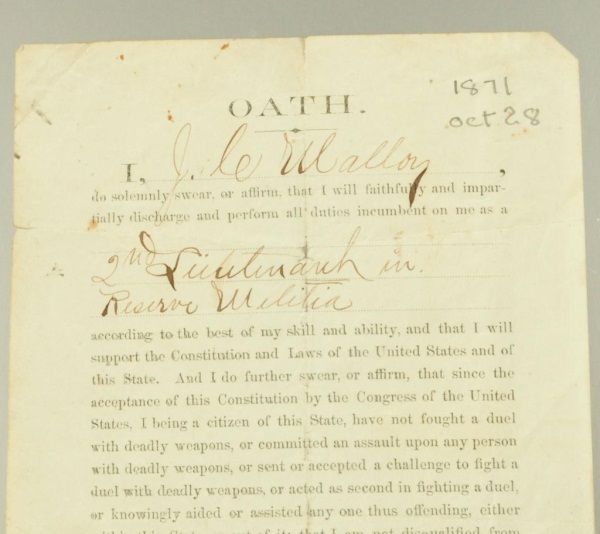 OATH.
1871
Oct 28
I, J. C. Malloy,
do solemnly swear, or affirm, that I will faithfully and impar-
tially discharge and perform all duties incumbent on me as a
2nd Lieutenant in
Reserve Militia
according to the best of my skill and ability, and that I will
support the Constitution and Laws of the United States and of
this State. And I do further swear, or affirm, that since the
acceptance of this Constitution by the Congress of the United
States, I being a citizen of this State, have not fought a duel
with deadly weapons, or committed an assault upon any person
with deadly weapons, or sent or accepted a challenge to fight a
duel with deadly weapons, or acted as second in fighting a duel,
or knowingly aided or assisted any one thus offending, either
within this State or out of it; that I am not disqualified from